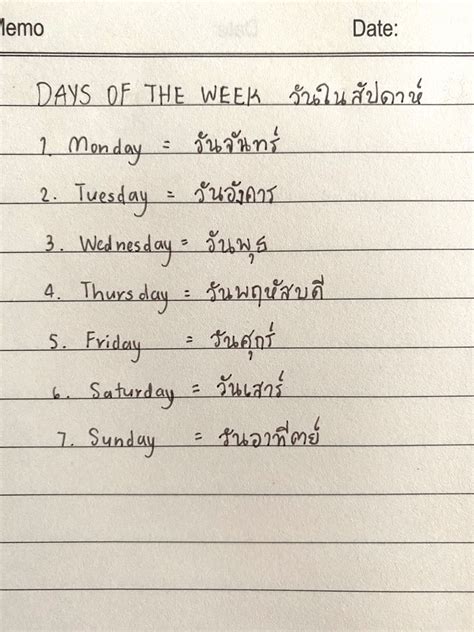 Memo Date:
DAYS OF THE WEEK วันในสัปดาห์
1. Monday = วันจันทร์
2. Tuesday = วันอังคาร
3. Wednesday = วันพุธ
4. Thursday = วันพฤหัสบดี
5. Friday = วันศุกร์
6. Saturday = วันเสาร์
7. Sunday = วันอาทิตย์